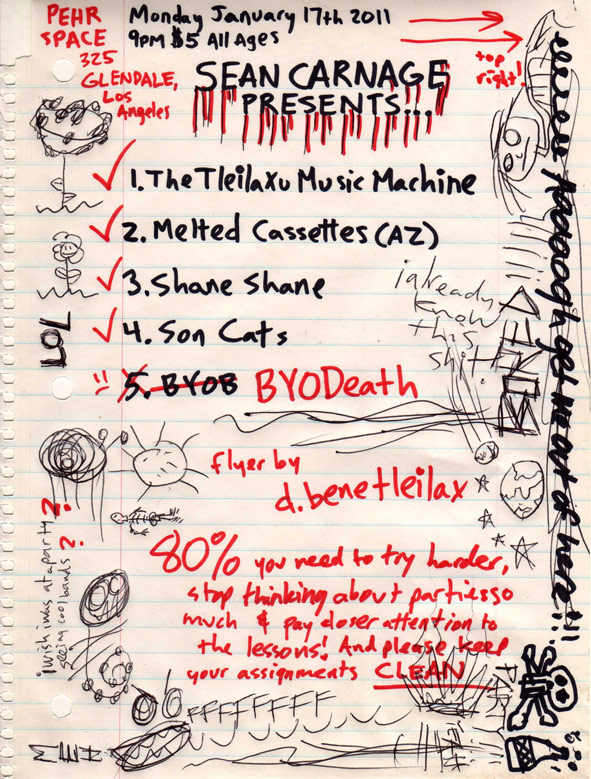 PEHR
SPACE
325
GLENDALE,
Los
Angeles
Monday January 17th 2011
9pm $5 All Ages
top
right!
SEAN CARNAGE
PRESENTS...
1. The Tleilaxu Music Machine
2. Melted Cassettes (AZ)
3. Shane Shane
4. Son Cats
5. BYOB BYODeath
LOL
i already
know
this
shit
BORED
get me out of here...!!
flyer by
d.benetleilax
80% you need to try harder,
stop thinking about parties so
much & pay closer attention to
the lessons! And please keep
your assignments CLEAN
i wish i was at a party ?
seeing cool bands ?
FFFFFFFF
MEH